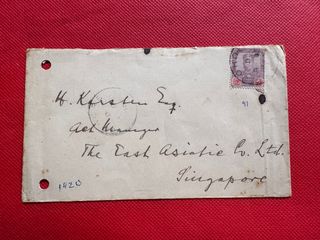 H. Karsten Esq.
91
Act Manager
The East Asiatic Co. Ltd.
Singapore
1420